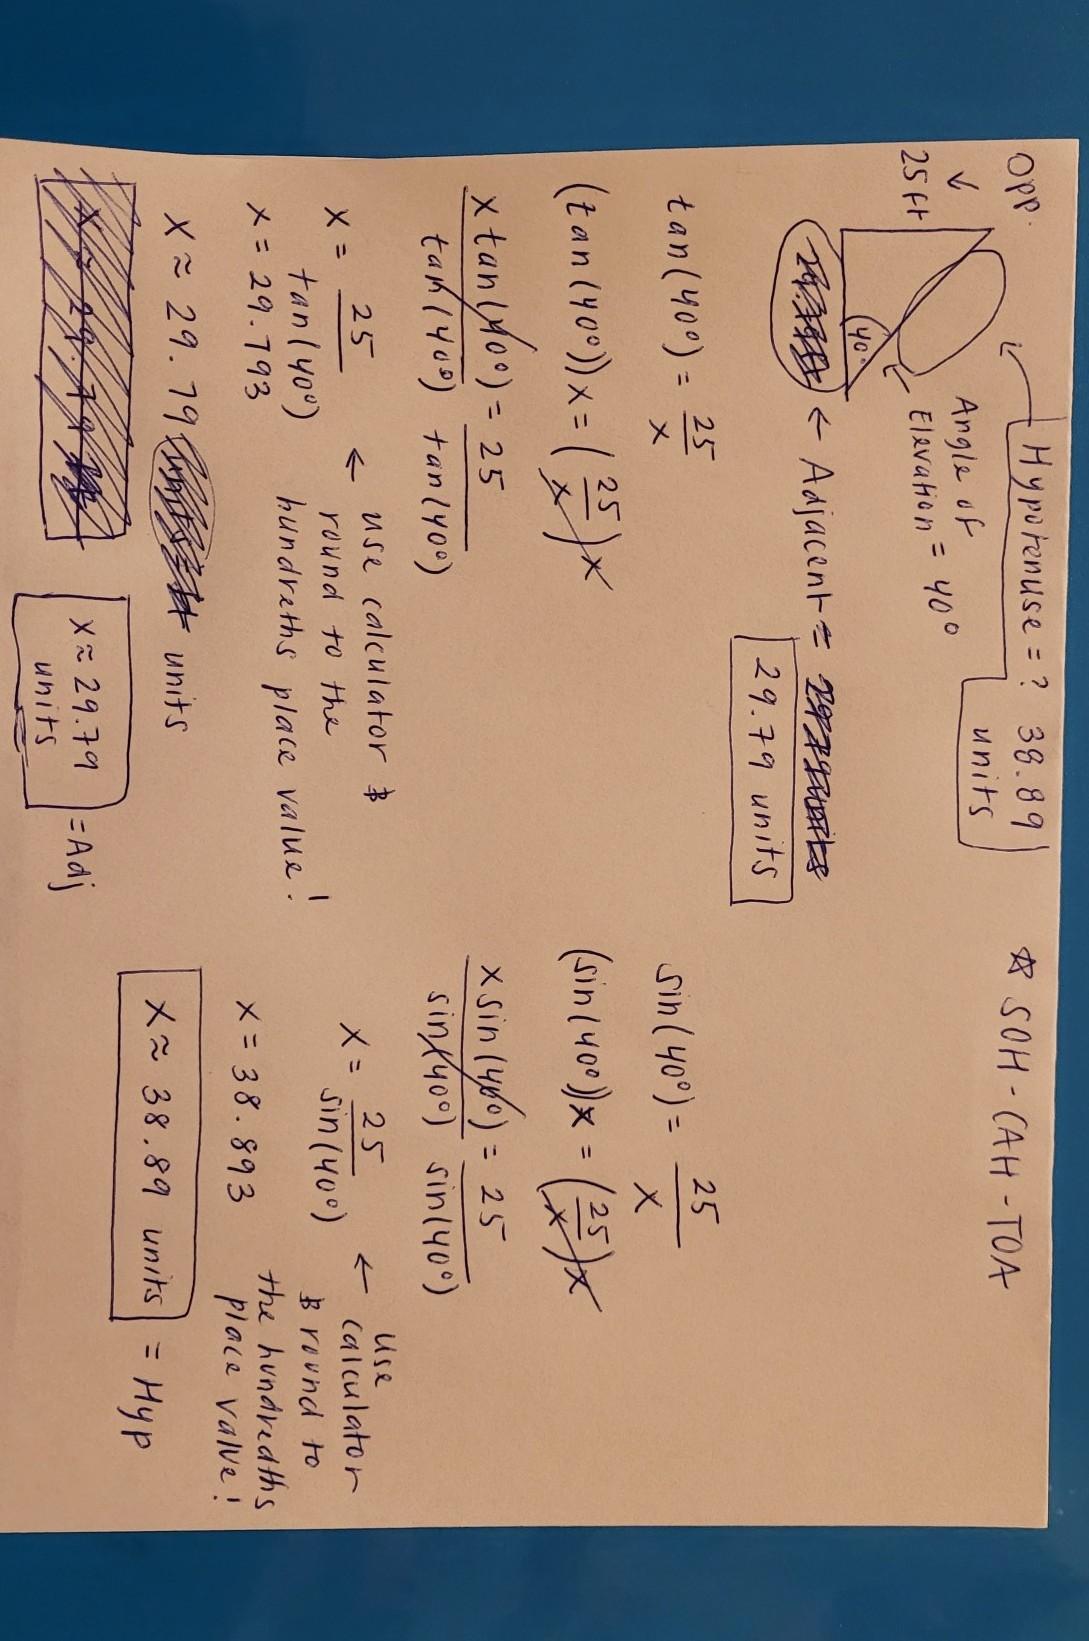 opp.
↓
25 ft
Hypotenuse = ? 38.89
units
☆ SOH-CAH-TOA
Angle of
Elevation = 40°
40°
← Adjacent =
29.79 units
tan(40°) = 25/x
(tan(40°))x = (25/x)x
x tan(40°) = 25
tan(40°) tan(40°)
x = 25/tan(40°)
← use calculator &
round to the
hundreths place value!
x = 29.793
x ≈ 29.79 units
x ≈ 29.79
units
= Adj
sin(40°) = 25/x
(sin(40°))x = (25/x)x
x sin(40°) = 25
sin(40°) sin(40°)
x = 25/sin(40°)
← use
calculator
& round to
the hundredths
place value!
x = 38.893
x ≈ 38.89 units = Hyp